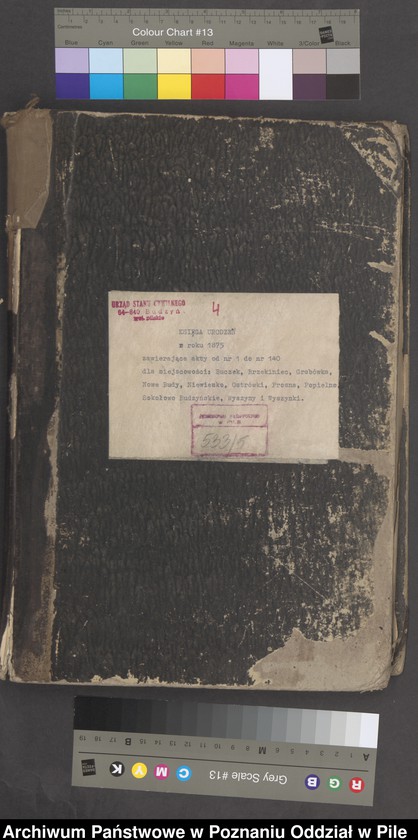 Colour Chart #13
Blue Cyan Green Yellow Red Magenta White 3/Color Black
URZĄD STANU CYWILNEGO
64-840 Budzyń
woj. pilskie
4
KSIĘGA URODZEŃ
w roku 1875
zawierające akty od nr 1 do nr 140
dla miejscowości: Brzekiniec, Grabówka,
Nowe Budy, Niewiemko, Ostrówki, Prosna, Popielno,
Sokołowo Budzyńskie, Wyszyny i Wyszynki.
ARCHIWUM PAŃSTWOWE
w PILE
533/5
Grey Scale #13
R G B
C M Y K
A M B
Archiwum Państwowe w Poznaniu Oddział w Pile